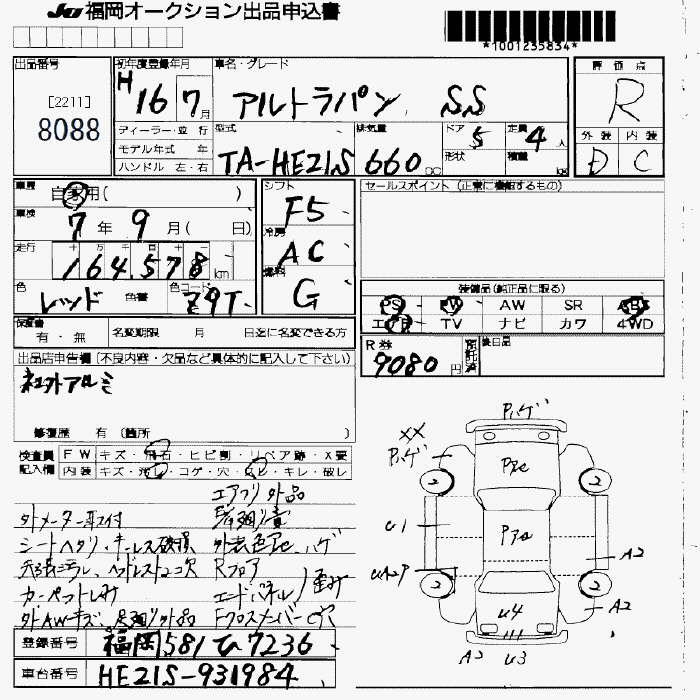 JU 福岡オークション出品申込書
*1001235834*
出品番号
[2211]
8088
初年度登録年月
H 16 7月
車名・グレード
アルトラパン SS
評価点
R
外装 内装
D C
ディーラー・並行
モデル年式 年
ハンドル 左・右
型式
TA-HE21S
排気量
660 cc
ドア 5
形状
定員 4人
積量 kg
車歴
自家用( )
車検
7年 9月( 日)
走行
十 万 千 百 十 一
164,578 km
色
レッド
色替
色コード
Z9T
シフト
F5
冷房
AC
燃料
G
セールスポイント (正常に機能するもの)
装備品(純正品に限る)
PS PW AW SR ABS
エアB TV ナビ カワ 4WD
保証書
有・無
名変期限 月 日迄に名変できる方
R券
9080円
預託済
後日品
出品店申告欄 (不良内容・欠品など具体的に記入して下さい)
社外アルミ
修復歴 有 (箇所 )
検査員記入欄
FW キズ・飛石・ヒビ割・リペア跡・X要
内装 キズ・汚レ・コゲ・穴・スレ・キレ・破レ
エアクリ外品
外メーター取付
シートヘタリ、キーレス破損、外装色アセ、ハゲ
ヘッドレスト2コ欠
Rフロア
カーペットしみ
エンドパネル
歪み
外AWキズ、足廻り外品
FクロスメンバーC穴
登録番号
福岡581ひ7236
車台番号
HE21S-931984
Pハゲ
XX
Pハゲ
Pアセ
2 2
U1
Pアセ
A2
UA2P
2 2
A2
U4
A3 U3